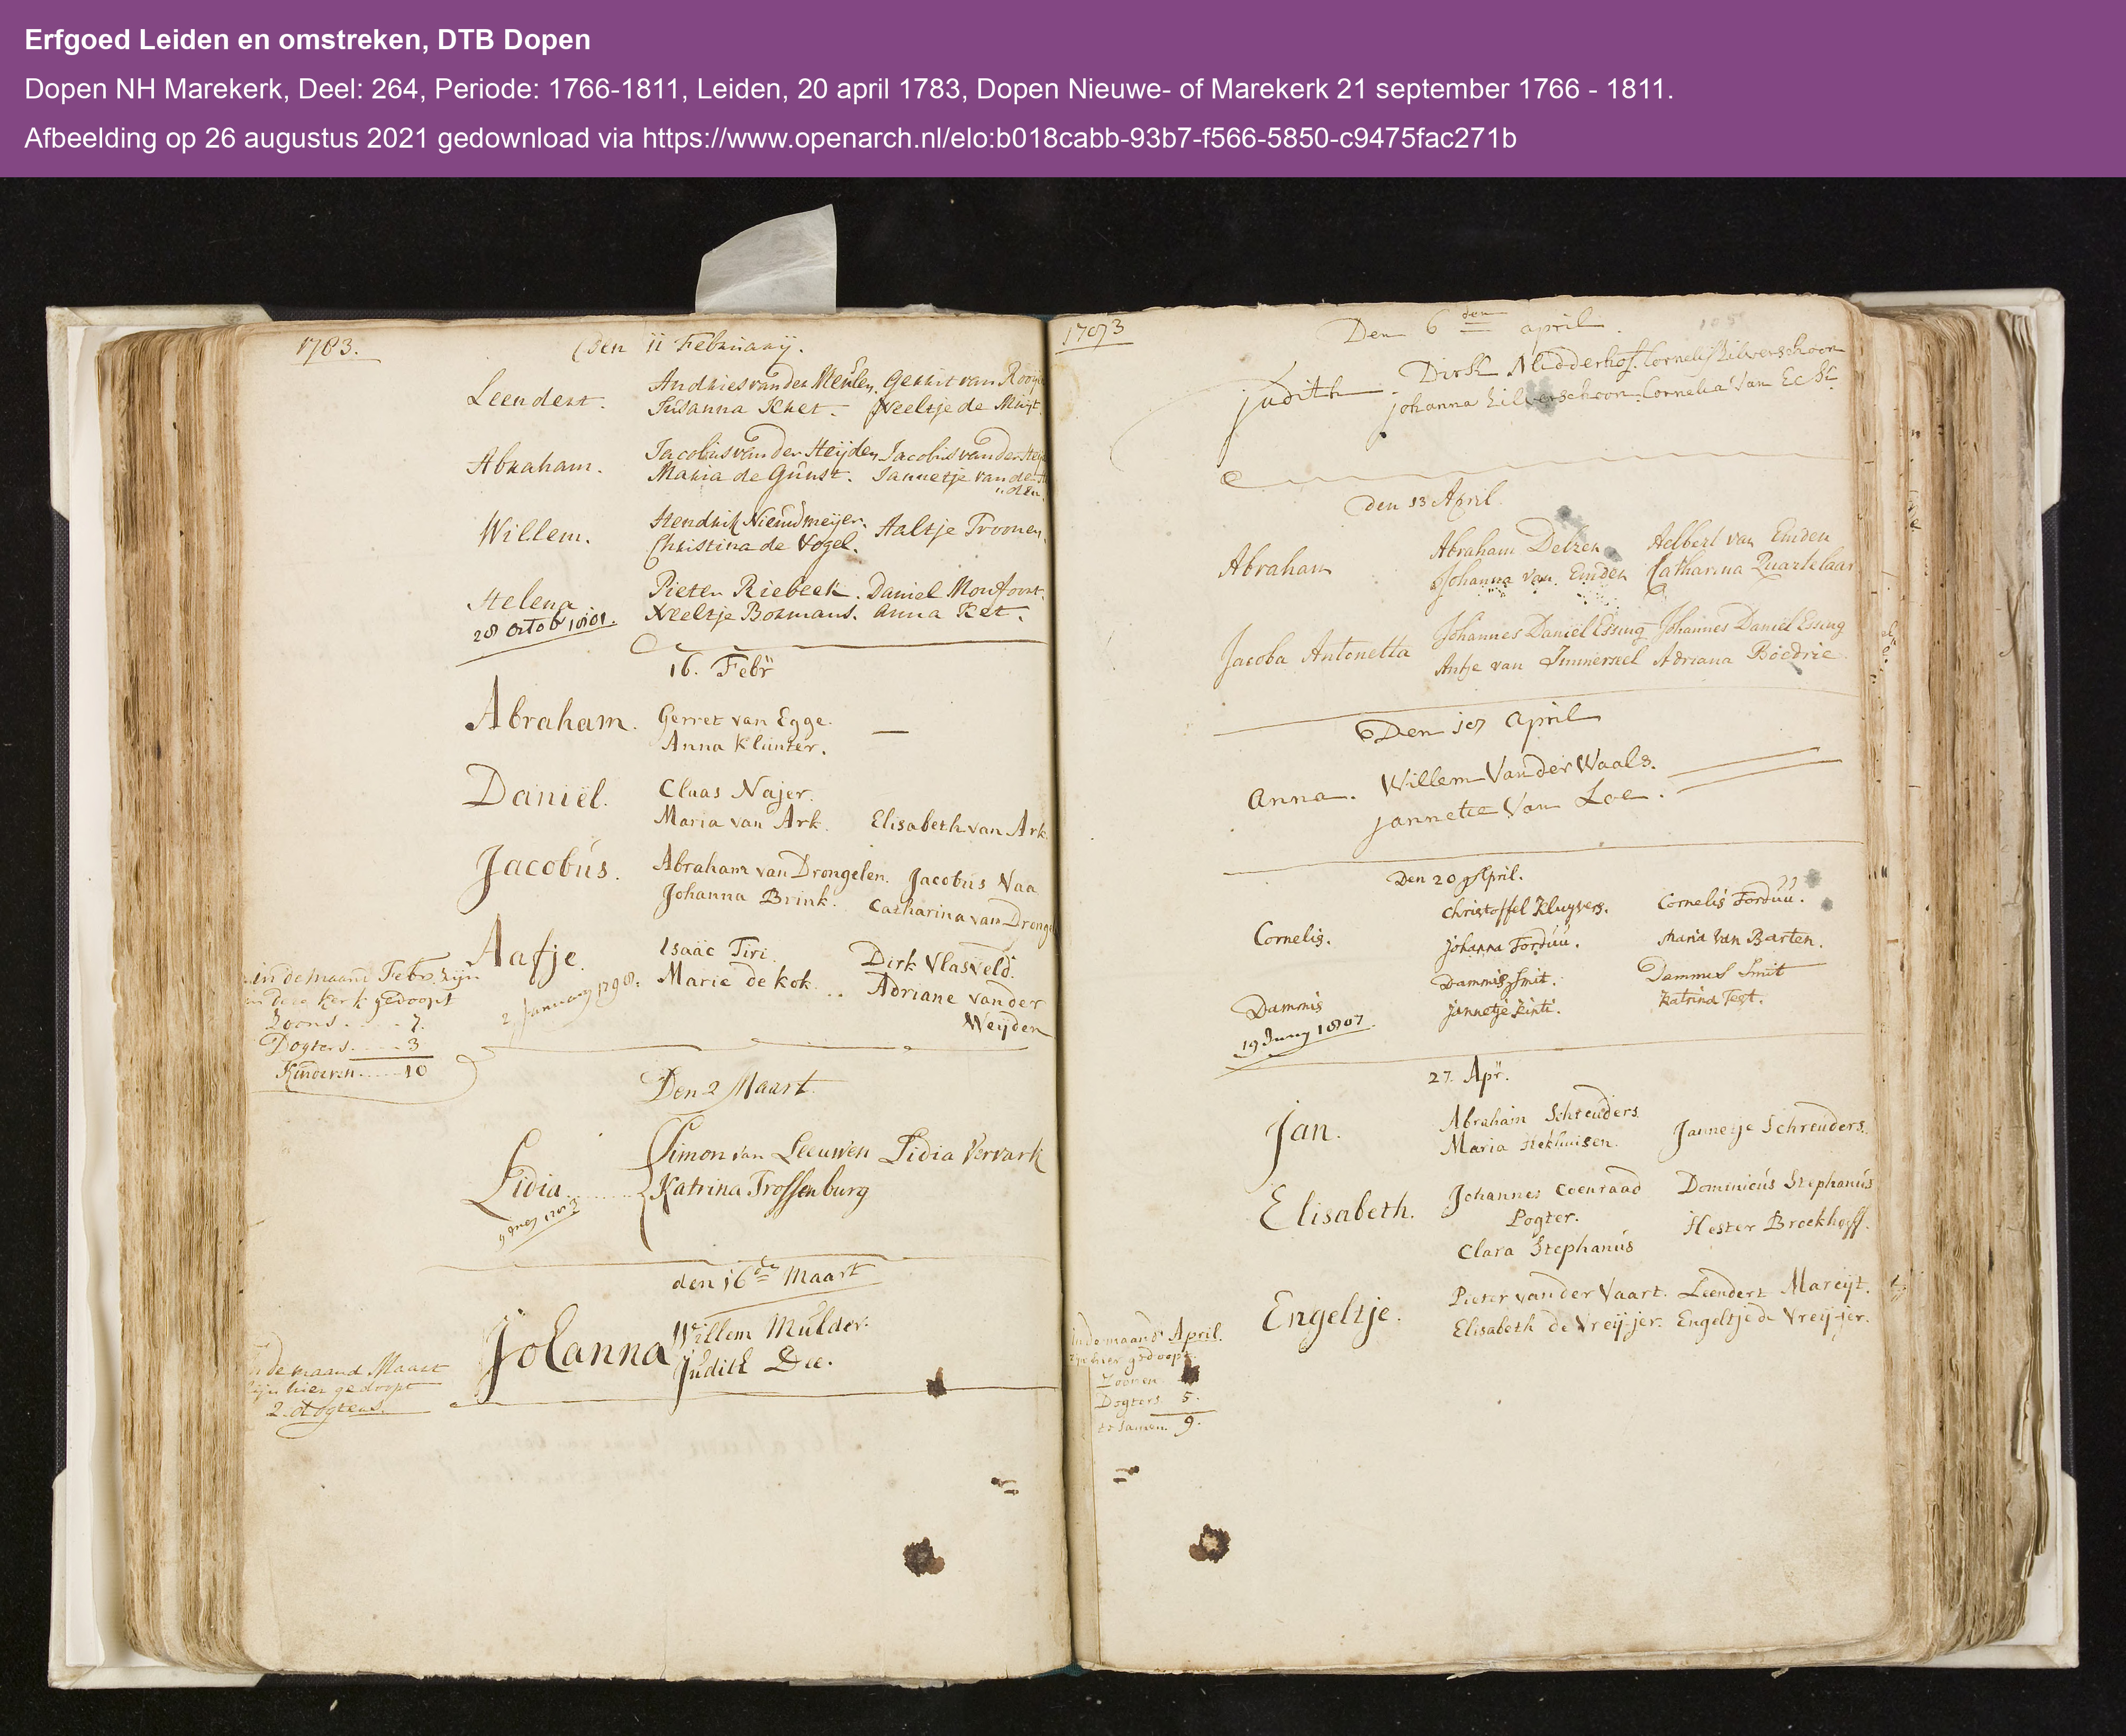 Erfgoed Leiden en omstreken, DTB Dopen
Dopen NH Marekerk, Deel: 264, Periode: 1766-1811, Leiden, 20 april 1783, Dopen Nieuwe- of Marekerk 21 september 1766 - 1811.
Afbeelding op 26 augustus 2021 gedownload via https://www.openarch.nl/elo:b018cabb-93b7-f566-5850-c9475fac271b
1783. den 11 Februarij.
Leendert. Andries van der Meulen. Gerrit van
Susanna Ket. Neeltje de
Abraham. Jacobus van der Heijden Jacobus van der
Maria de Gunst. Jannetje van de
Willem. Hendrik Nieuwmeijer. Aaltje Troonen.
Christina de Vogel.
Helena Pieter Riebeek. Daniel Monfoort.
28 octob 1801. Neeltje Bormans. Anna Ket.
16. Febr
Abraham. Gerret van Egge. —
Anna Klunter.
Daniël. Claas Najer.
Maria van Ark. Elisabeth van Ark
Jacobus. Abraham van Drongelen. Jacobus
Johanna Brink. Catharina van
Aafje. Isaäc Tiri. Dirk Vlasveld.
2 January 1798. Marie de kok... Adriane vander
Weijden
in de maand Febr. zijn
in deze kerk gedoopt
Zoons.....7.
Dogters.....3
Kinderen.....10
Den 2 Maart
Lidia Simon van Leeuwen Lidia Vervark
Katrina Trossenburg
den 16de Maart
Johanna Willem Mulder.
Judith Dee.
de maand Maart
zijn hier gedoopt
2 dogters.
1783 Den 6 den april.
judith. Dirk Nedderhof. Cornelis Zilverschoon
johanna Zilverschoon. Cornelia Van
den 13 April
Abraham Abraham Delzen Aelbert van Emden
Johanna van Emden Catharina Quartelaar
Jacoba Antonetta Johannes Daniël Essing Johannes Daniël Essing
Antje van Immerseel Adriana Boedrie
Den 18 april
anna. Willem Van der Waals.
jannetee Van Loe.
Den 20 April.
Cornelis. Christoffel Kluyvers. Cornelis Forduu.
johanna Forduu. Maria van Barten.
Dammis Dammis Smit. Dammes Smit
19 Juny 1807. jannetje Kinti. Katrina Tegt.
27. Apr.
Jan. Abraham Schreuders Jannetje Schreuders.
Maria Hekhuisen.
Elisabeth. Johannes Coenraad Dominicus Stephanus
Pogter. Hester Broekhoff.
Clara Stephanus
Engeltje. Pieter van der Vaart. Leendert Mareijt.
Elisabeth de Vreij-jer. Engeltje de Vreij-jer.
In de maand April.
zijn hier gedoopt.
Zoonen
Dogters 5.
te samen. 9.